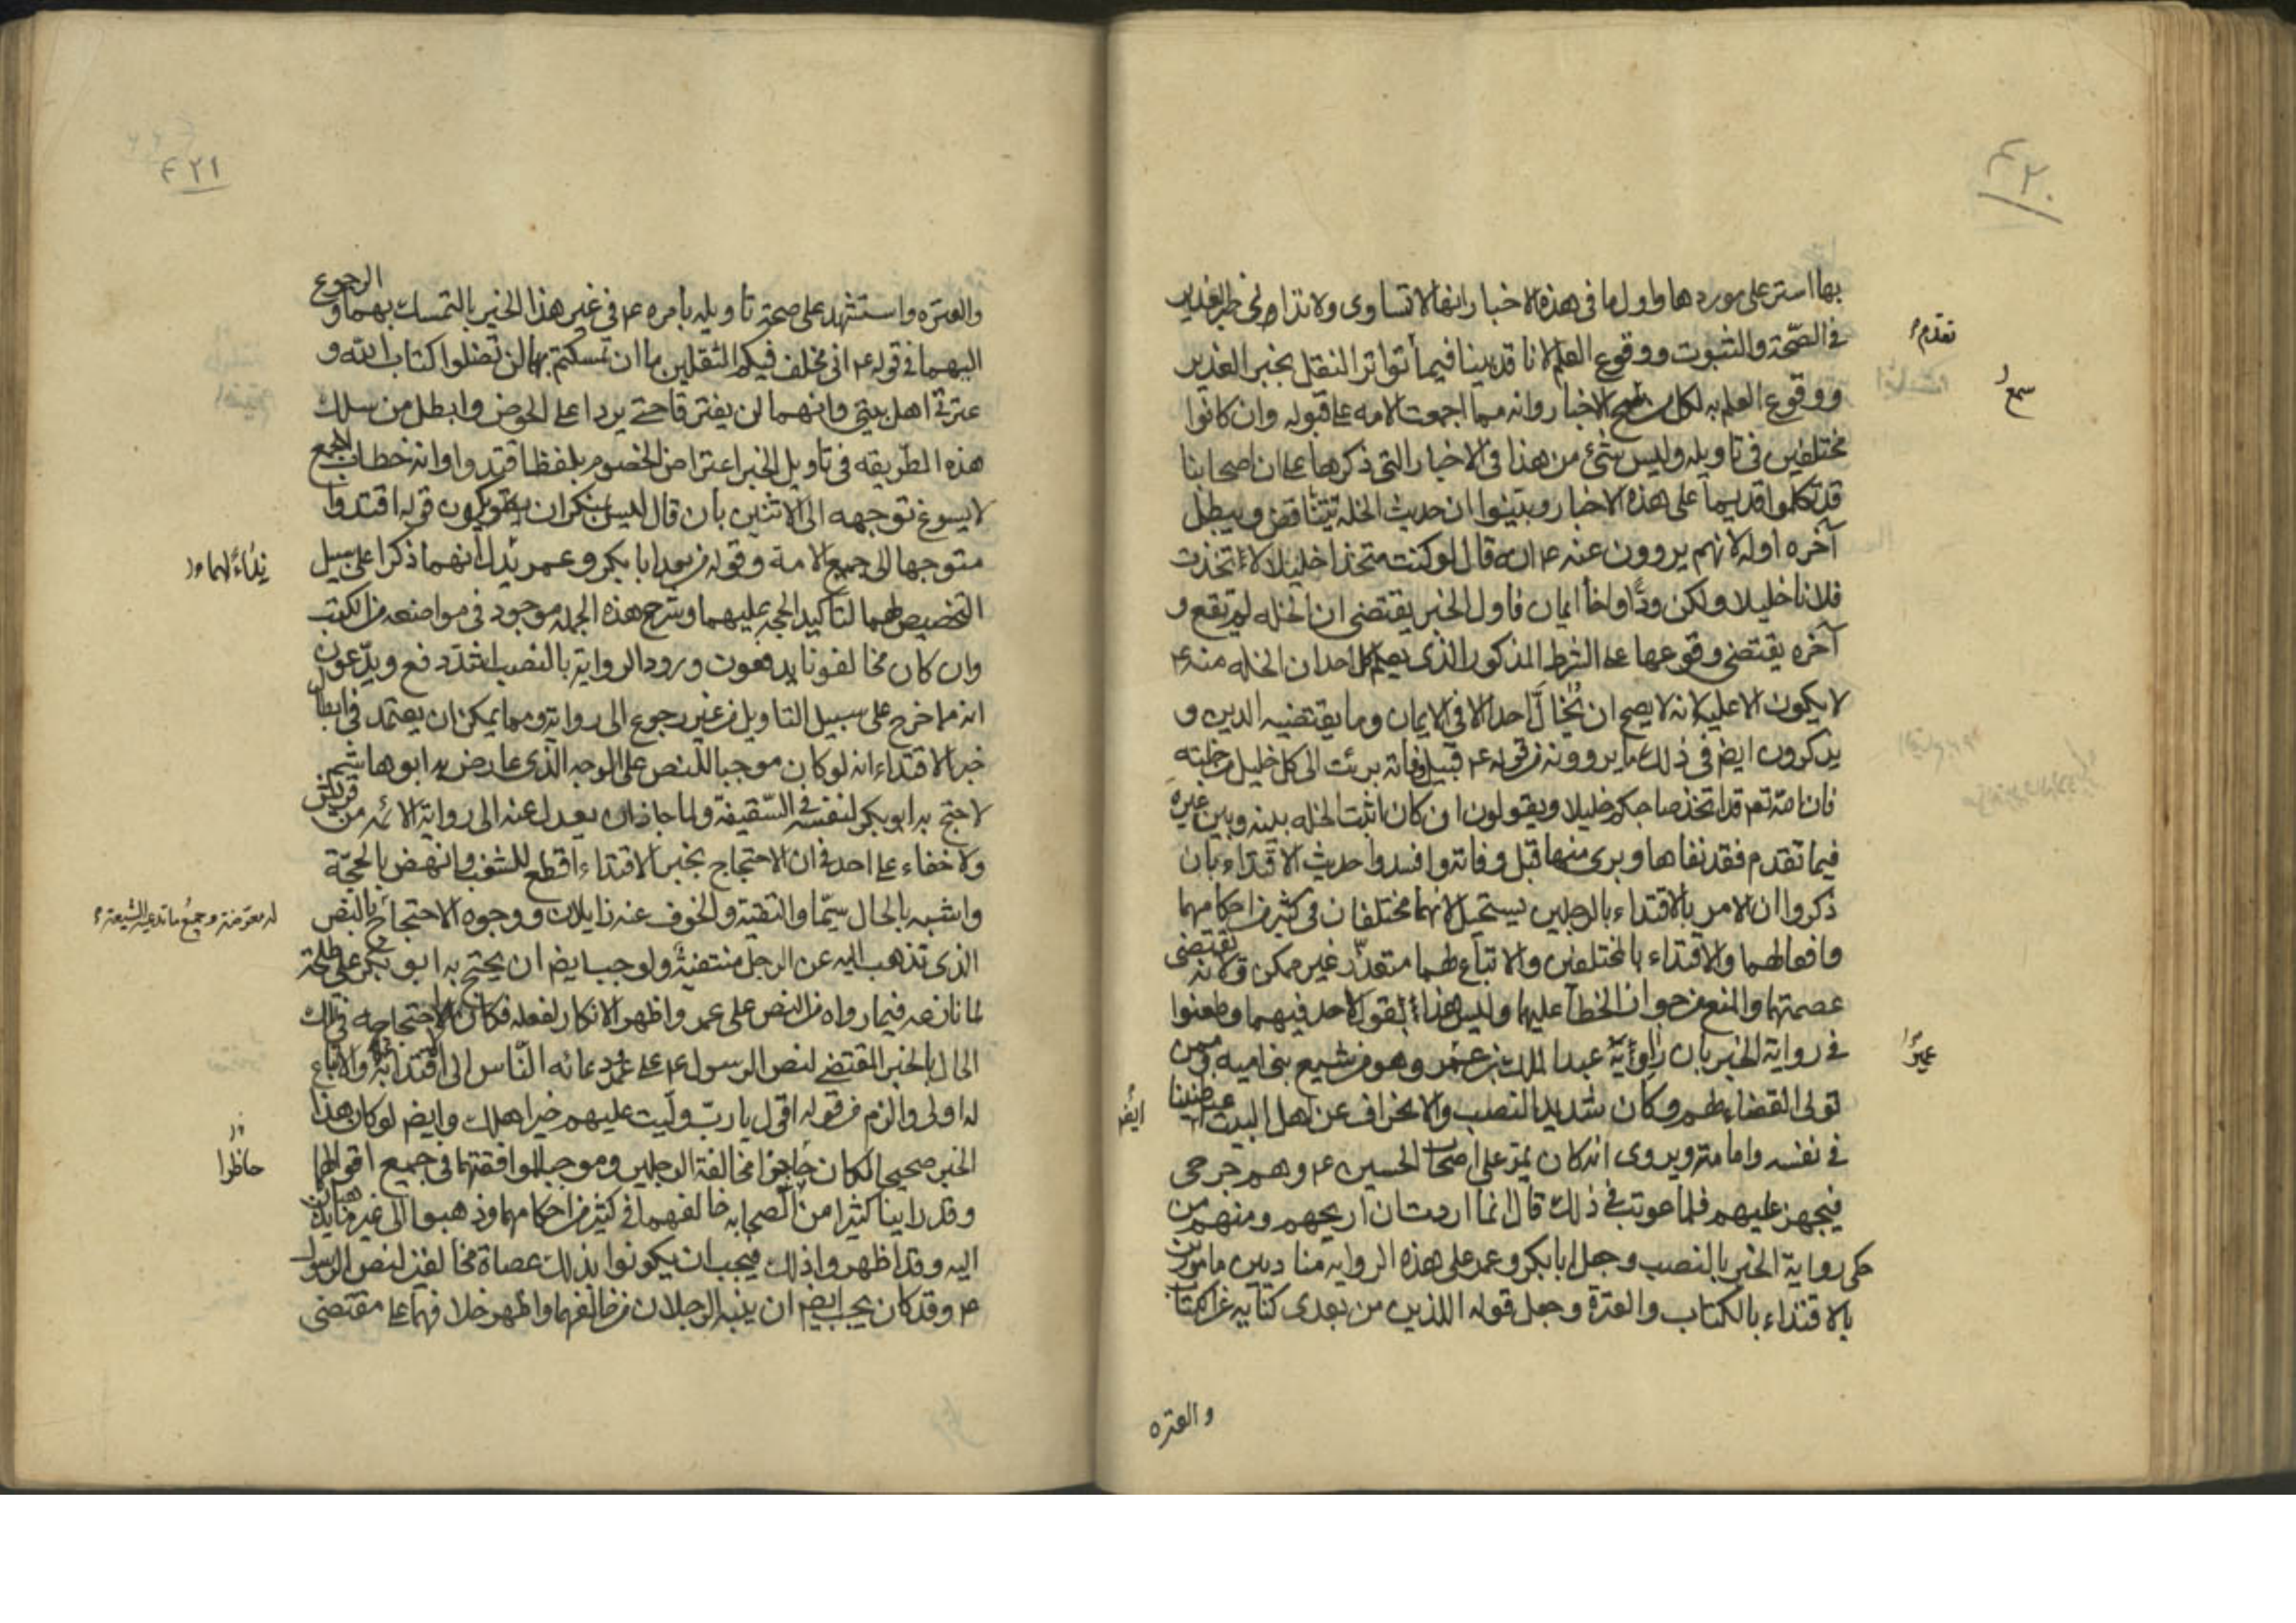 ٤٢٠
بها استر على موردها واول ما في هذه الاخبار انها لا تساوى ولا تدانى خبر الغدير
تقدم
في الصّحة والثبوت ووقوع العلم لانا قد بينا فيما تواتر النقل بخبر الغدير
سمع
ووقوع العلم به لكل من الاخبار وانه مما اجمعت الامه على قبوله وان كانوا
مختلفين في تاويله وليس شئ من هذا في الاخبار التى ذكرها على ان اصحابنا
قد تكلموا قديما على هذه الاخبار وبينوا ان حديث الخله يتناقض ويبطل
آخره اوله لانهم يروون عنه ع انه قال لو كنت متخذا خليلا لاتخذت
فلانا خليلا ولكن ودّا واخا ايمان فاول الخبر يقتضى ان الخله لم تقع و
آخره يقتضى وقوعها على الشرط المذكور الذى يعلم كل احد ان الخله منه ع
لا يكون الا عليه لانه لا يصح ان يُخالّ احدا الا في الايمان وما يقتضيه الدين و
يذكرون ايضا في ذلك ما يروونه من قوله ع قبيل وفاته برئت الى كل خليل من خلته
فان الله تعم قد اتخذ صاحبكم خليلا ويقولون ان كان اثبت الخله بينه وبين غيره
فيما تقدم فقد نفاها وبرى منها قبل وفاته وافسدوا حديث الاقتداء بان
ذكروا ان الامر بالاقتداء بالرجلين يستحيل لانهما مختلفان في كثير من احكامهما
وافعالهما والاقتداء بالمختلفين والاتباع لهما متعذّر غير ممكن ولانه يقتضى
عصمتهما والمنع من جواز الخطأ عليهما وليس هذا بقول لاحد فيهما وطعنوا
في رواية الخبر بان راويه عبد الملك بن عمر وهو من شيع بنى اميه وممن
عمير
تولى القضاء لهم وكان شديد النصب والانحراف عن اهل البيت ظنينا
ايضا
في نفسه وامانته ويروى انه كان يمرّ على اصحاب الحسين ع وهم جرحى
فيجهز عليهم فلما عوتب في ذلك قال انما اردت ان اريحهم ومنهم من
حكى رواية الخبر بالنصب وجعل ابا بكر وعمر على هذه الروايه مناديين مامورين
بالاقتداء بالكتاب والعترة وجعل قوله اللذين من بعدى كنايه عن الكتاب
والعتره
٤٢١
والعتره واستشهد على صحة تاويله بامره ع في غير هذا الخبر بالتمسك بهما و الرجوع
اليهما في قوله ع انى مخلف فيكم الثقلين ما ان تمسكتم بهما لن تضلوا كتاب الله و
عترتى اهل بيتى وانهما لن يفترقا حتى يردا على الحوض وابطل من سلك
هذه الطريقه في تاويل الخبر اعتراض الخصوم بلفظ اقتدوا وانه خطاب للجمع
لا يسوغ توجهه الى الاثنين بان قال ليس بمنكر ان يكون قوله اقتدوا
متوجها الى جميع الامة وقوله من بعد ابا بكر وعمر يدل انهما ذكرا على سبيل
نداءً لهما
التخصيص لهما لتاكيد الحجه عليهما وشرح هذه الجمله موجود في مواضعه من الكتب
وان كان مخالفونا يدفعون ورود الرواية بالنصب اشدّ دفع ويدّعون
انه مما خرج على سبيل التاويل من غير رجوع الى رواية ومما يمكن ان يعتمد في ابطال
خبر الاقتداء انه لو كان موجبا للنص على الوجه الذى عارض به ابو هاشم
لاحتج به ابو بكر لنفسه في السّقيفة ولما جاز ان يعدل عنه الى رواية الائمه من قريش
ولا خفاء على احد في ان الاحتجاج بخبر الاقتداء اقطع للشغب وانهض بالحجّة
واشبه بالحال سيّما والتقية والخوف عنه زايلان ووجوه الاحتجاج بالنص
له معرّضة وجميع ما تدعيه الشيعة
الذى تذهب اليه عن الرجل منتفية ولوجب ايضا ان يحتج به ابو بكر على طلحة
لما نازعه فيما رواه من النص على عمر واظهر الانكار لفعله فكان احتجاجه في تلك
الحال بالخبر المقتضى لنص الرسول ع على عمر ودعائه النّاس الى الاقتداء به والاتباع
له اولى والزم من قوله اقول يا ربّ ولّيت عليهم خير اهلك وايضا لو كان هذا
الخبر صحيحا لكان حاجزا مخالفة الرجلين وموجبا لموافقتهما في جميع اقوالهما
حاظرا
وقد راينا كثيرا من الصحابه خالفهما في كثير من احكامهما وذهبوا الى غير ما يذهبان
اليه وقد اظهروا ذلك فيجب ان يكونوا بذلك عصاة مخالفين لنص الرسول
ع وقد كان يجب ايضا ان ينبه الرجلان من خالفهما واظهر خلافهما على مقتضى